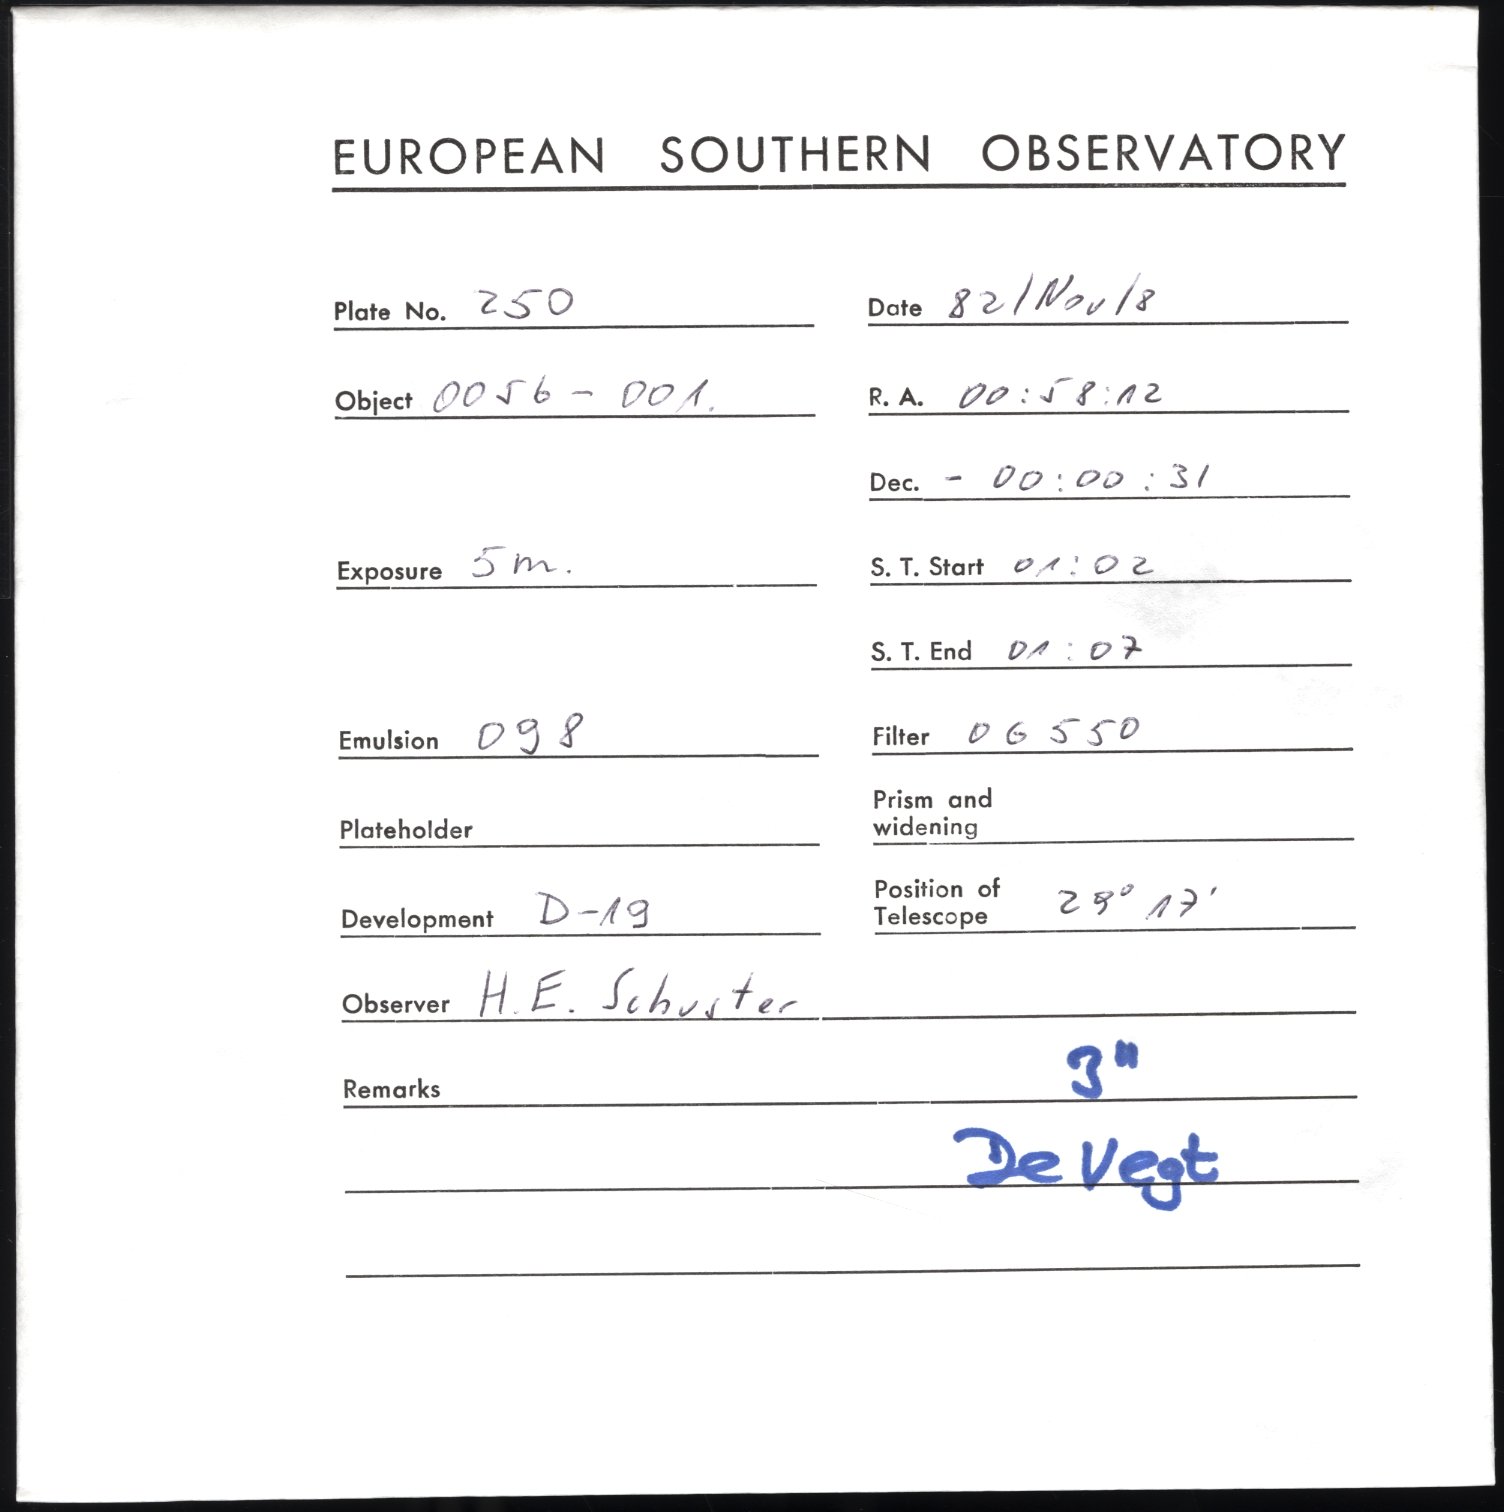 EUROPEAN SOUTHERN OBSERVATORY
Plate No. 250
Date 82/Nov/8
Object 0056-001.
R. A. 00:58:12
Dec. - 00:00:31
Exposure 5m.
S. T. Start 01:02
S. T. End 01:07
Emulsion 098
Filter OG 550
Plateholder
Prism and
widening
Development D-19
Position of
Telescope 29° 17'
Observer H.E. Schuster
Remarks
3"
De Vegt